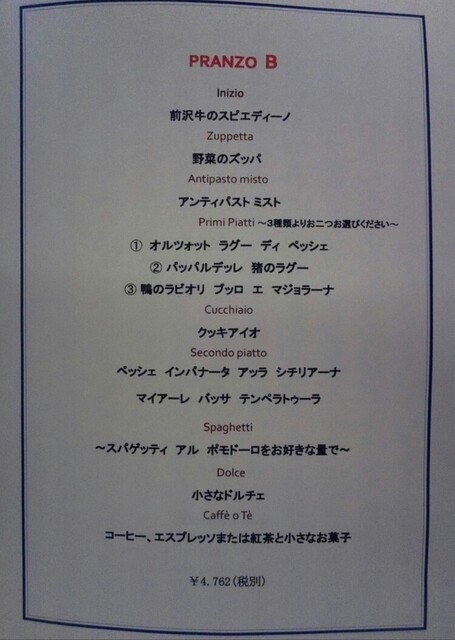 PRANZO B
Inizio
前沢牛のスピエディーノ
Zuppetta
野菜のズッパ
Antipasto misto
アンティパスト ミスト
Primi Piatti ～3種類よりお二つお選びください～
① オルツォット ラグー ディ ペッシェ
② パッパルデッレ 猪のラグー
③ 鴨のラビオリ ブッロ エ マジョラーナ
Cucchiaio
クッキアイオ
Secondo piatto
ペッシェ インパナータ アッラ シチリアーナ
マイアーレ バッサ テンペラトゥーラ
Spaghetti
～スパゲッティ アル ポモドーロをお好きな量で～
Dolce
小さなドルチェ
Caffè o Tè
コーヒー、エスプレッソまたは紅茶と小さなお菓子
￥4.762（税別）